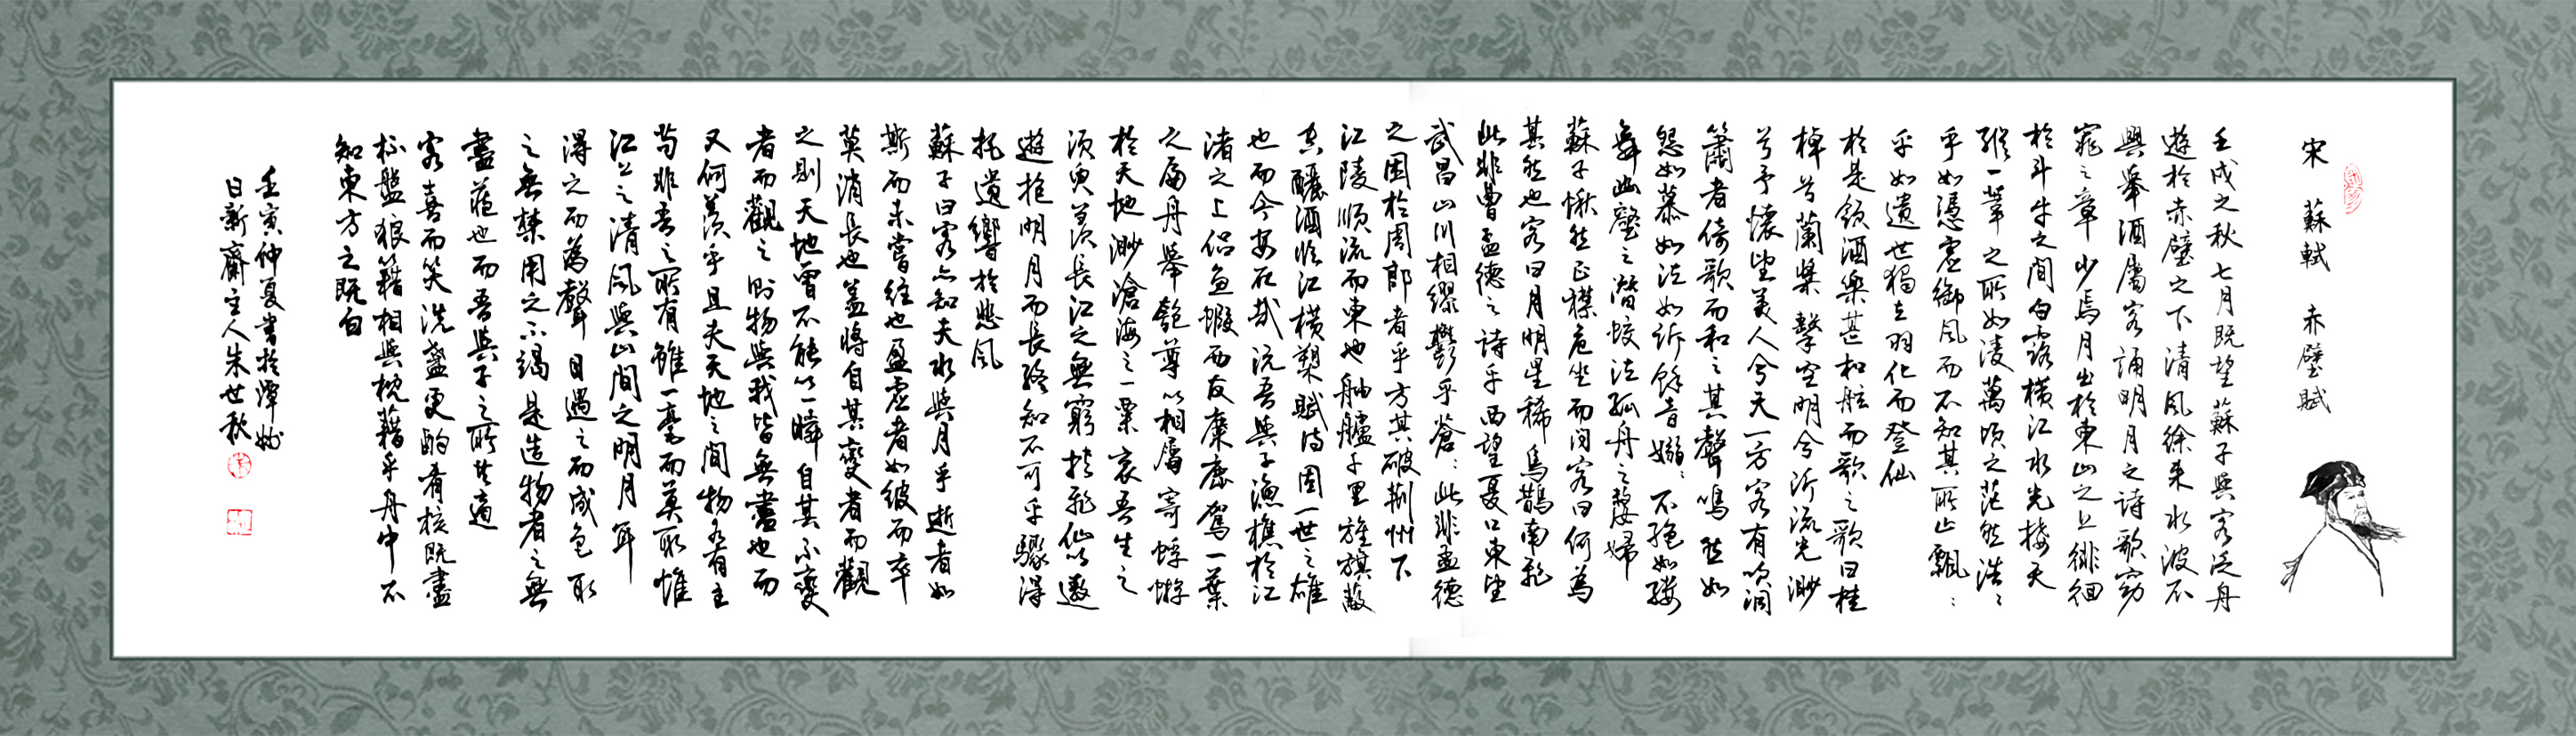 宋 蘇軾 赤壁賦
壬戌之秋七月既望蘇子與客泛舟
遊於赤壁之下清風徐来水波不
興舉酒屬客誦明月之詩歌窈
窕之章少焉月出於東山之上徘徊
於斗牛之間白露橫江水光接天
縱一葦之所如凌萬頃之茫然浩〻
乎如憑虛御風而不知其所止飄〻
乎如遺世獨立羽化而登仙
於是飲酒樂甚扣舷而歌之歌曰桂
棹兮蘭槳擊空明兮泝流光渺
兮予懷望美人兮天一方客有吹洞
簫者倚歌而和之其聲嗚然如
怨如慕如泣如訴餘音嫋〻不絕如縷
舞幽壑之潛蛟泣孤舟之嫠婦
蘇子愀然正襟危坐而問客曰何為
其然也客曰月明星稀烏鵲南飛
此非曹孟德之詩乎西望夏口東望
武昌山川相繆鬱乎蒼〻此非孟德
之困於周郎者乎方其破荆州下
江陵順流而東也舳艫千里旌旗蔽
空釃酒临江橫槊賦詩固一世之雄
也而今安在哉況吾與子漁樵於江
渚之上侣魚蝦而友麋鹿駕一葉
之扁舟舉匏尊以相屬寄蜉蝣
於天地渺滄海之一粟哀吾生之
須臾羡長江之無窮挾飛仙以遨
遊抱明月而長終知不可乎驟得
托遺響於悲風
蘇子曰客亦知夫水與月乎逝者如
斯而未嘗往也盈虛者如彼而卒
莫消長也蓋將自其變者而觀
之則天地曾不能以一瞬自其不變
者而觀之則物與我皆無盡也而
又何羡乎且夫天地之間物各有主
苟非吾之所有雖一毫而莫取惟
江上之清風與山間之明月耳
得之而為聲目遇之而成色取
之無禁用之不竭是造物者之無
盡藏也而吾與子之所共適
客喜而笑洗盞更酌肴核既盡
杯盤狼籍相與枕藉乎舟中不
知東方之既白
壬寅仲夏書於潭
日新齋主人朱世秋